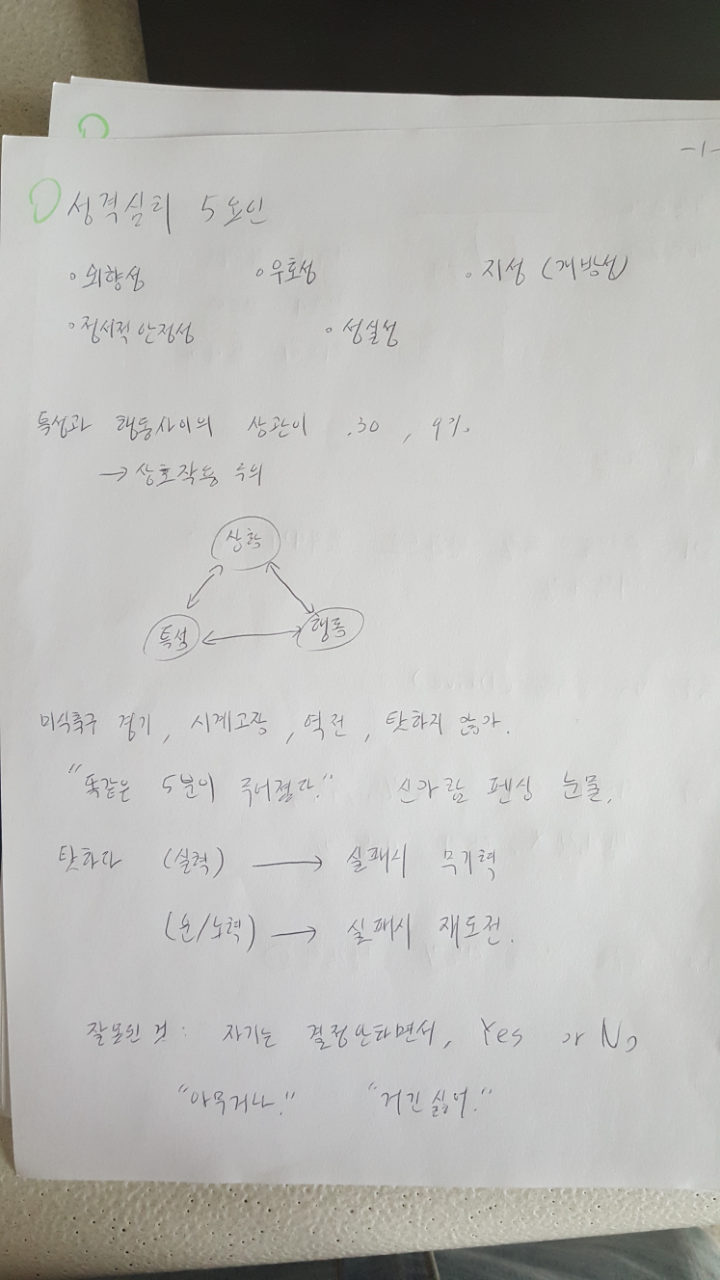 -1-
성격심리 5요인
◦외향성 ◦우호성 ◦지성 (개방성)
◦정서적 안정성 ◦성실성
특성과 행동사이의 상관이 .30 , 9%
→ 상호작용 주의
상황
특성 행동
미식축구 경기 , 시계고장 , 역전 , 탓하지 않가.
"똑같은 5분이 주어졌다." 신가람 펜싱 눈물.
탓하다 (실력) → 실패시 무기력
(운/노력) → 실패시 재도전.
잘못된 것 : 자기는 결정안하면서, Yes or No
"아무거나." "거긴싫어."